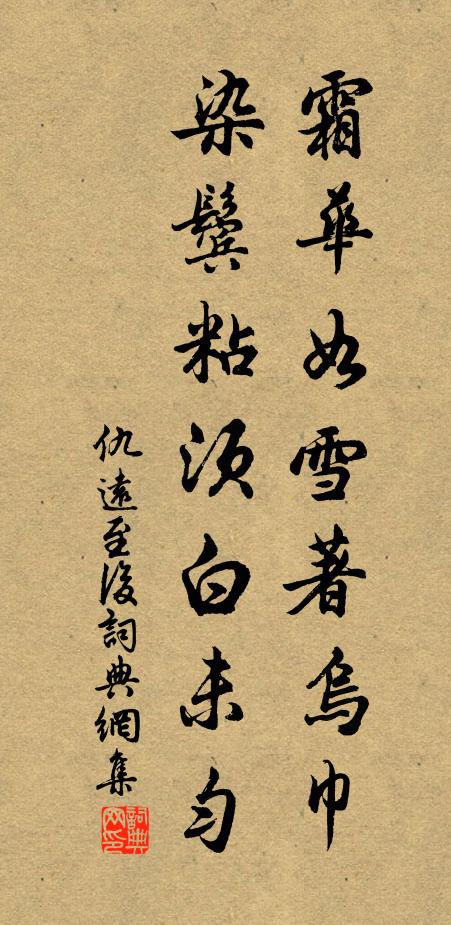 霜華如雪著烏巾
染鬢粘須白未勻
仇遠至後詞典網集
詞典網印